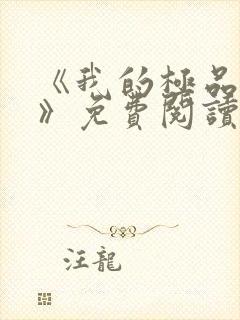 《我的極品
》免費閱讀
汪龍